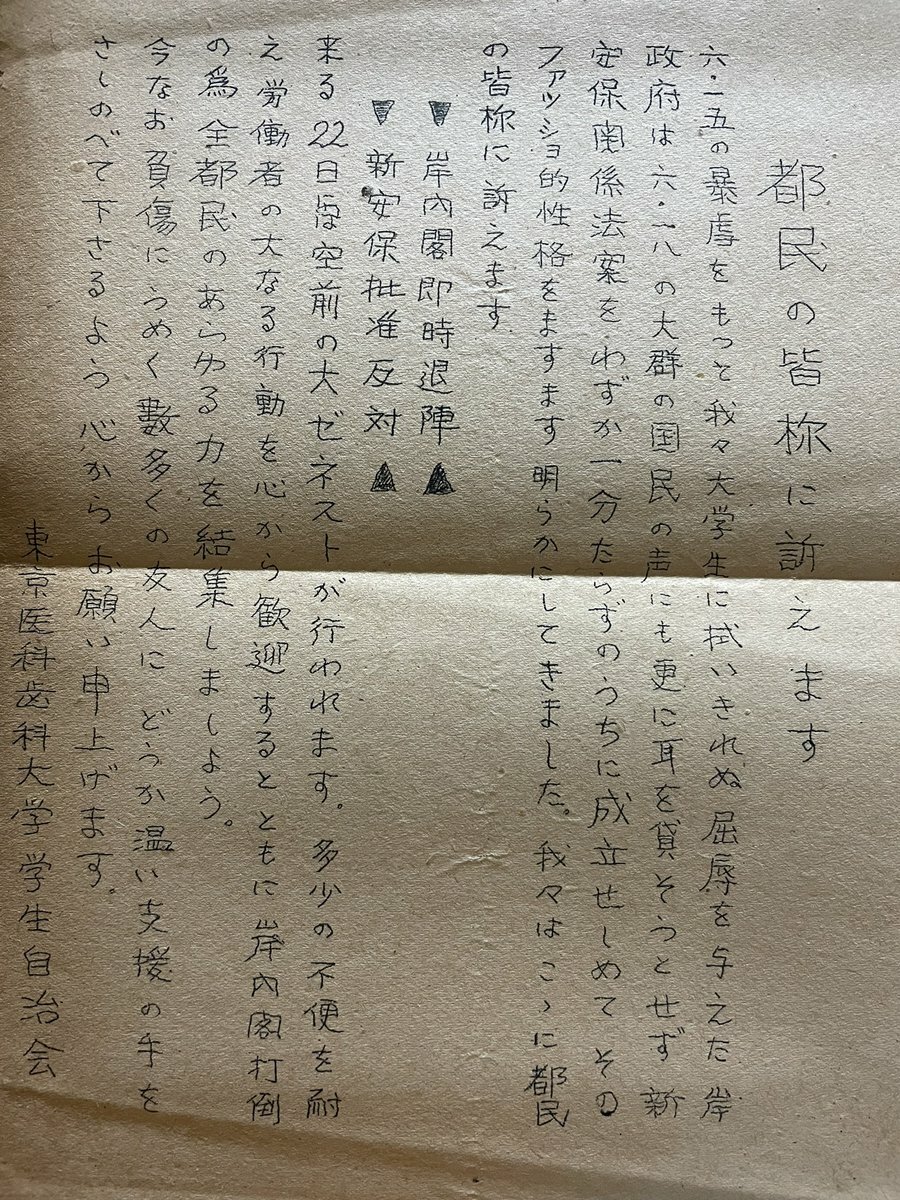 都民の皆称に訴えます
六・一五の暴虐をもって我々大学生に拭いきれぬ屈辱を与えた岸
政府は六・一八の大群の国民の声にも更に耳を貸そうとせず新
安保関係法案をわずか一分たらずのうちに成立せしめてその
ファッショ的性格をますます明らかにしてきました。我々はこゝに都民
の皆称に訴えます
▼岸内閣即時退陣▲
▼新安保批准反対▲
来る22日は空前の大ゼネストが行われます。多少の不便を耐
え労働者の大なる行動を心から歓迎するとともに岸内閣打倒
の為全都民のあらゆる力を結集しましょう。
今なお負傷にうめく數多くの友人にどうか温い支援の手を
さしのべて下さるよう心からお願い申上げます。
東京医科歯科大学学生自治会